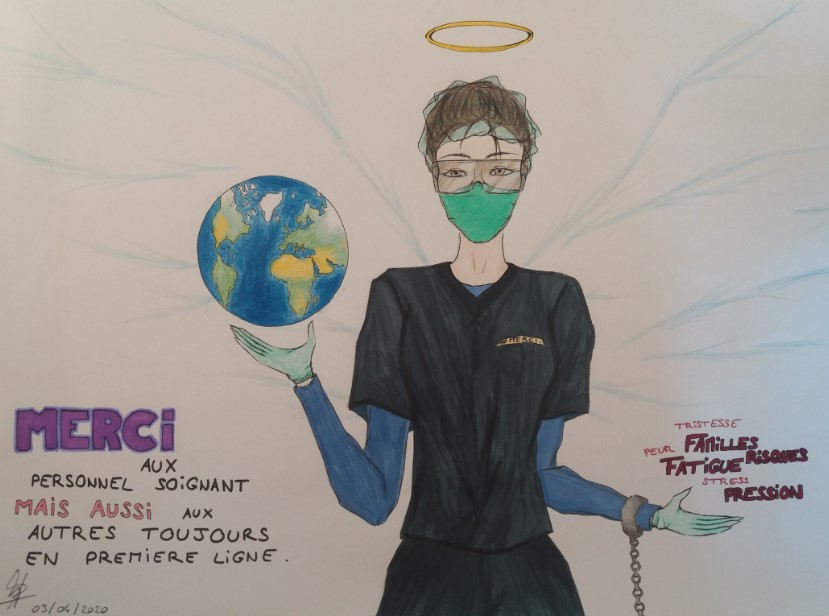 MERCI
MERCI
AUX
PERSONNEL SOIGNANT
MAIS AUSSI AUX
AUTRES TOUJOURS
EN PREMIERE LIGNE.
03/04/2020
TRISTESSE
PEUR FAMILLES
FATIGUE RISQUES
STRESS
PRESSION